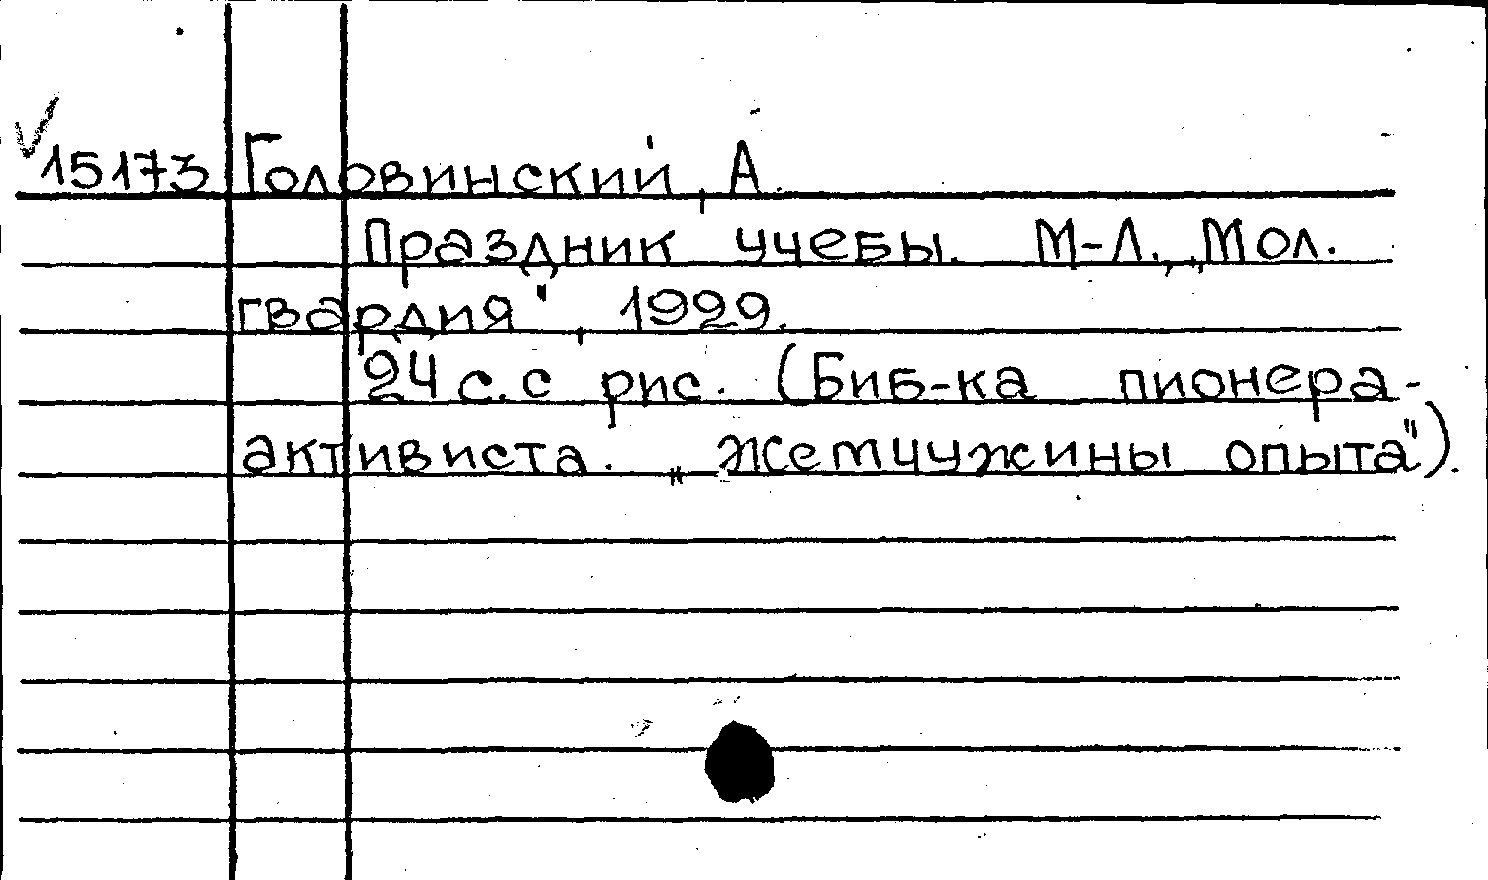 15173 Головинский, А.
Праздник учебы. М-Л., „Мол.
гвардия", 1929.
24 с. с рис. (Биб-ка пионера-
активиста. „Жемчужины опыта").